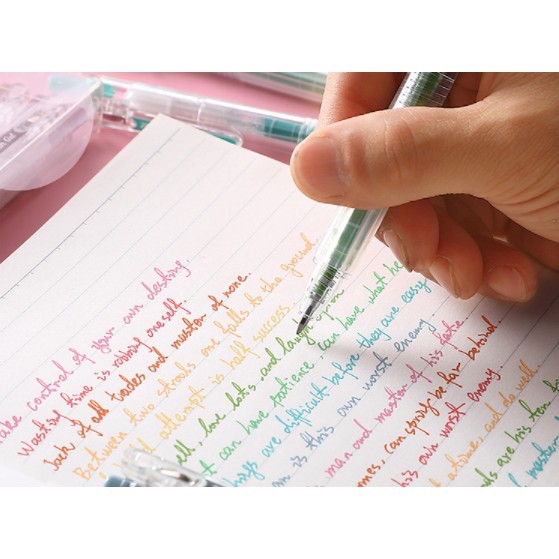 ake control of your own destiny.
Wasting time is robbing oneself.
Jack of all trades and master of none.
Between two stools one falls to the ground
attempt is half success.
ell, love lots and laugh often
t can have patience, can have what he
things are difficult before they are easy
an is his own worst enemy
man and master of his fate
mes, can spring be far behind
his own worst enemy
at a time, and do well.
ds are his